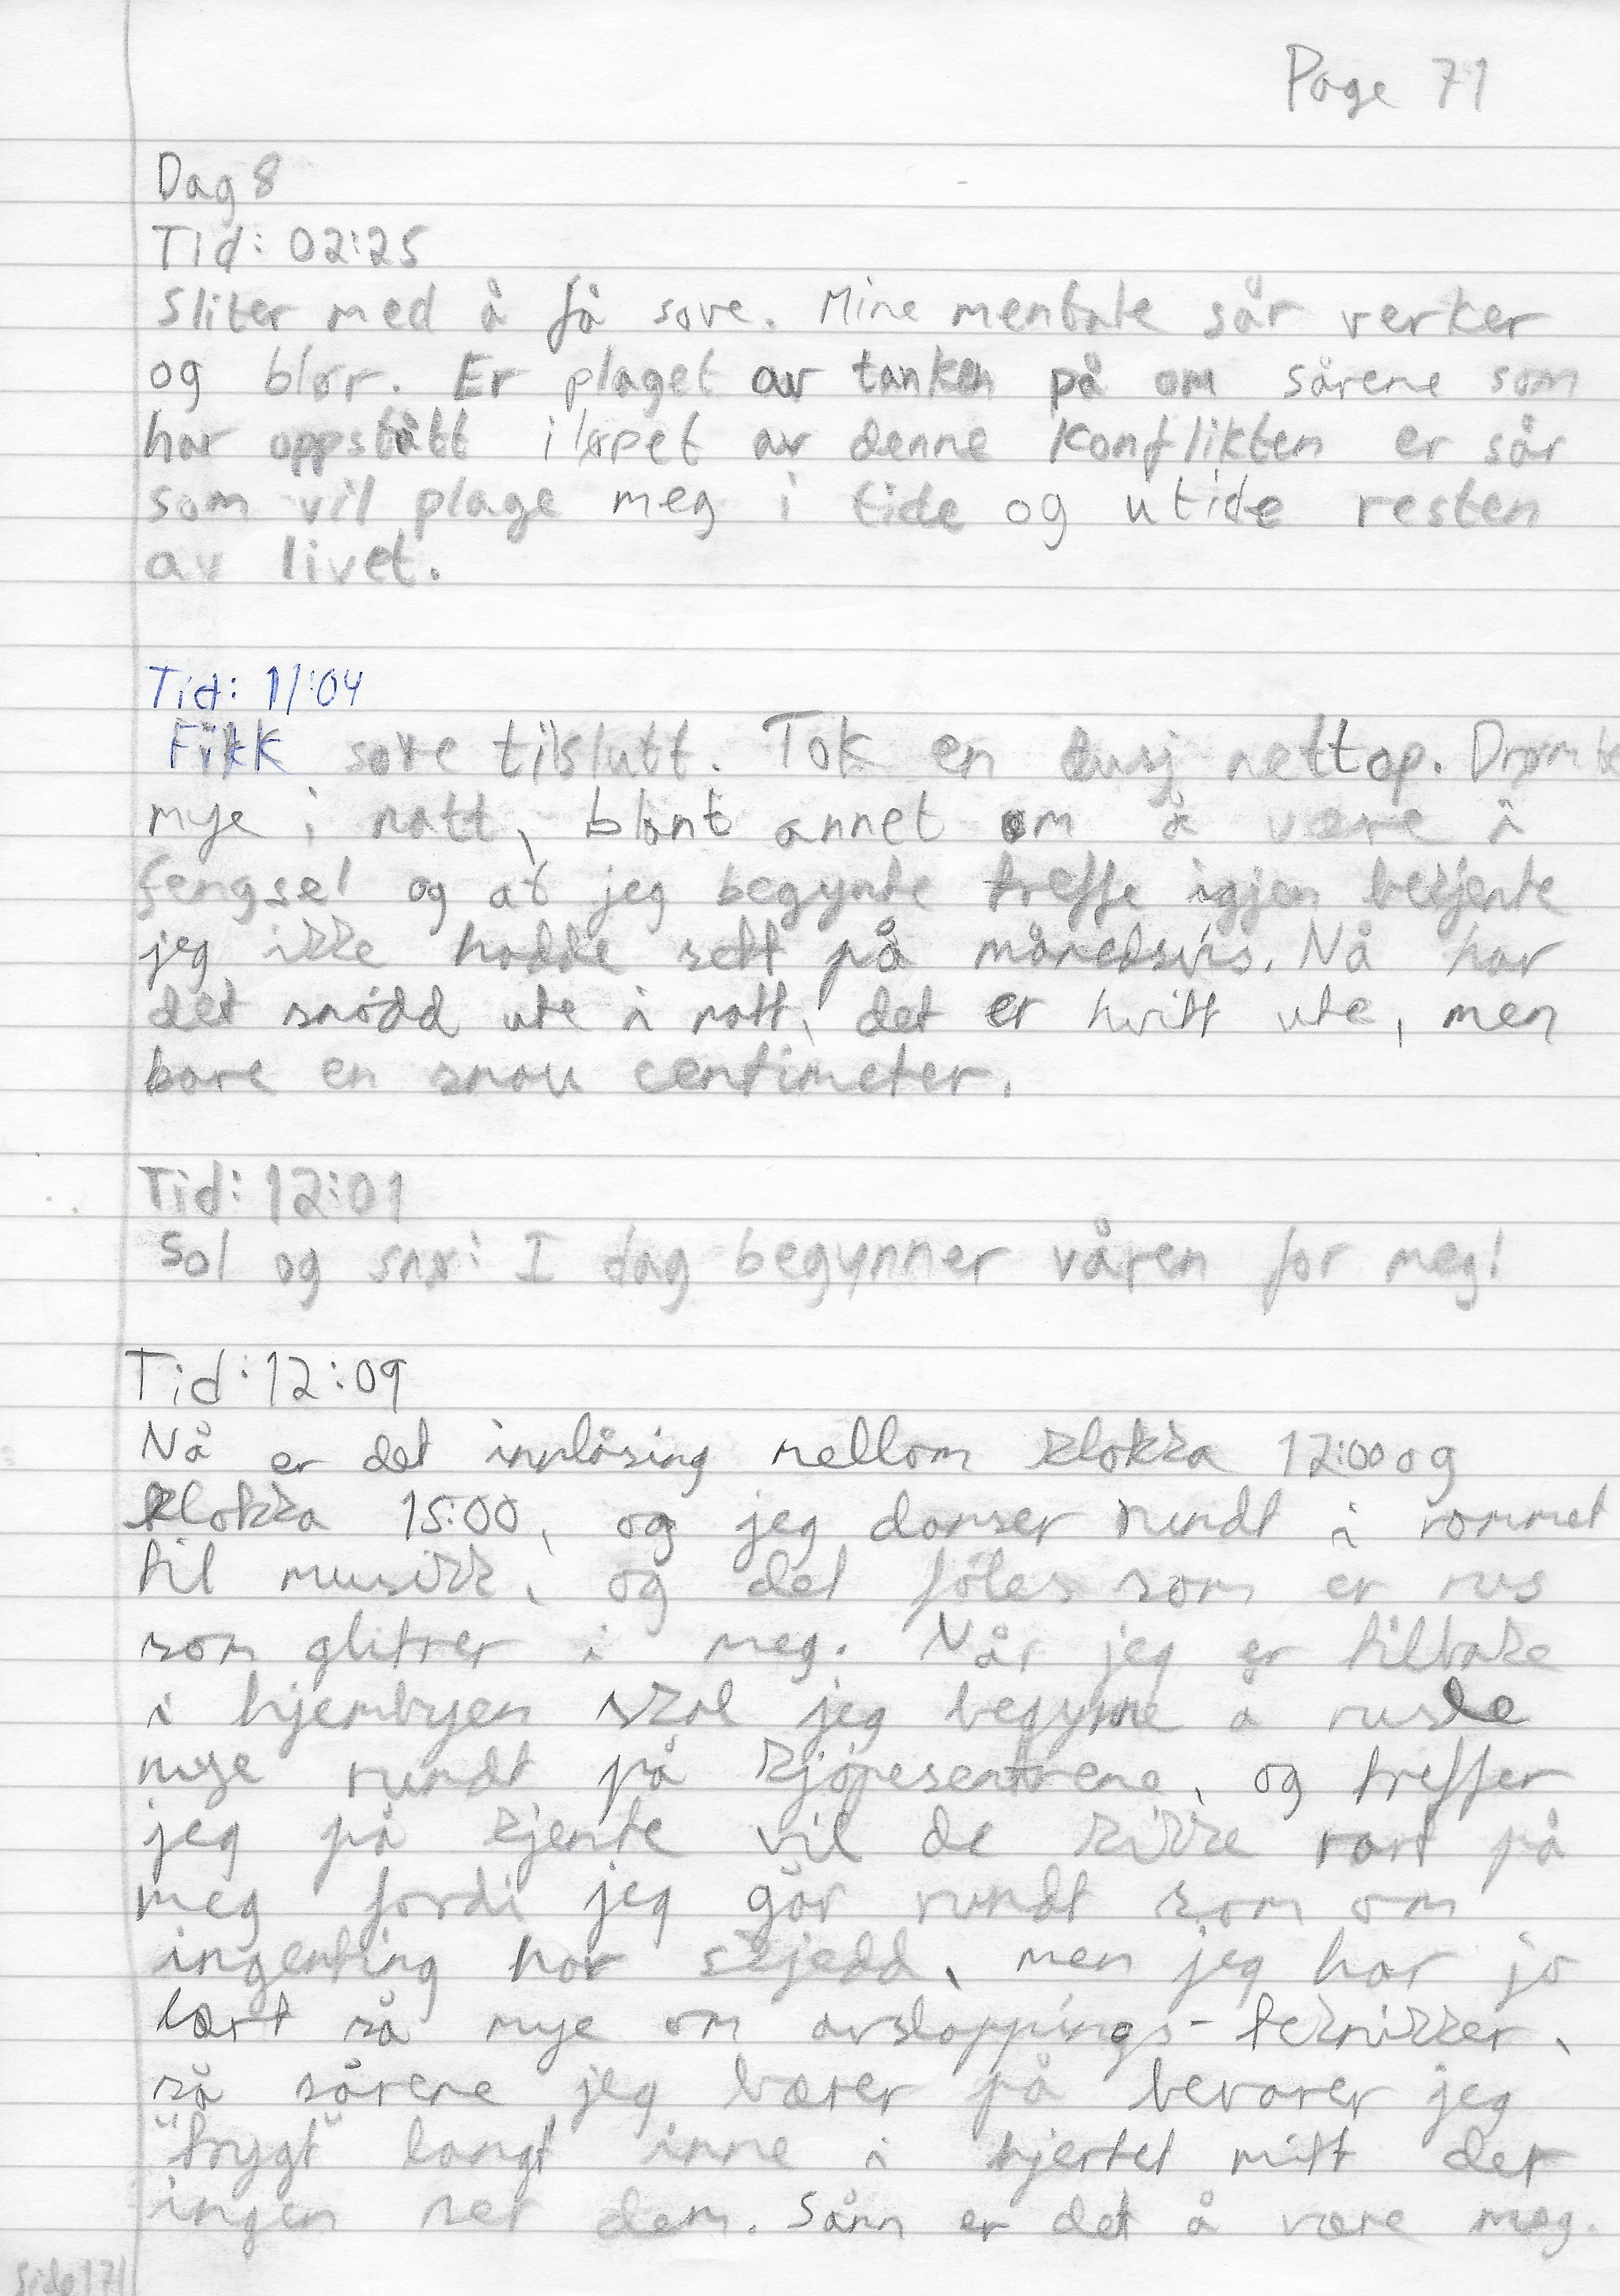 Page 71
Dag 8
Tid: 02:25
Sliter med å få sove. Mine mentale sår verker
og blør. Er plaget av tanken på om sårene som
har oppstått i løpet av denne konflikten er sår
som vil plage meg i tide og utide resten
av livet.
Tid: 11:04
Fikk sove tilslutt. Tok en dusj nettop. Drømte
mye i natt, blant annet om å være i
fengsel og at jeg begynte treffe igjen bekjente
jeg ikke hadde sett på månedsvis. Nå har
det snødd ute i natt, det er hvitt ute, men
bare en snau centimeter.
Tid: 12:01
Sol og snø: I dag begynner våren for meg!
Tid: 12:09
Nå er det innlåsing mellom klokka 12:00 og
klokka 15:00, og jeg danser rundt i rommet
til musikk, og det føles som er rus
som glitrer i meg. Når jeg er tilbake
i hjembyen skal jeg begynne å rusle
mye rundt på kjøpesentrene, og treffer
jeg på kjente vil de kikke rart på
meg fordi jeg går rundt som om
ingenting har skjedd, men jeg har jo
lært så mye om avslappings-teknikker,
så sårene jeg bærer på bevarer jeg
"trygt" langt inne i hjertet mitt der
ingen ser dem. Sånn er det å være meg.
Side 171